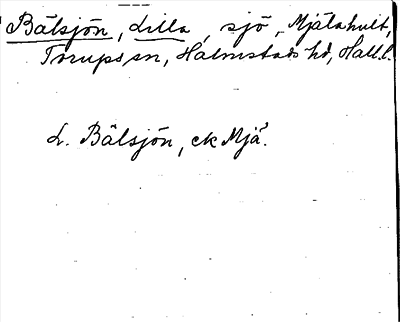 Bälsjön, Lilla, sjö, Mjälahult,
Torups sn, Halmstads hd, Hall.l.
L. Bälsjön, ek Mjä.